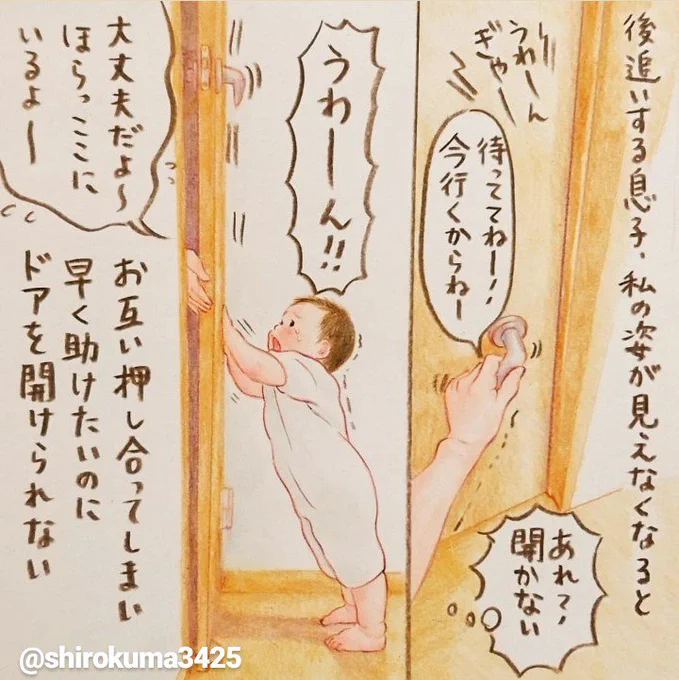 後追いする息子、私の姿が見えなくなると
うわーん
ぎゃー
待っててねー!!
今行くからねー
あれ?!
開かない
うわーん!!
大丈夫だよ〜
ほらっここに
いるよー
お互い押し合ってしまい
早く助けたいのに
ドアを開けられない
@shirokuma3425